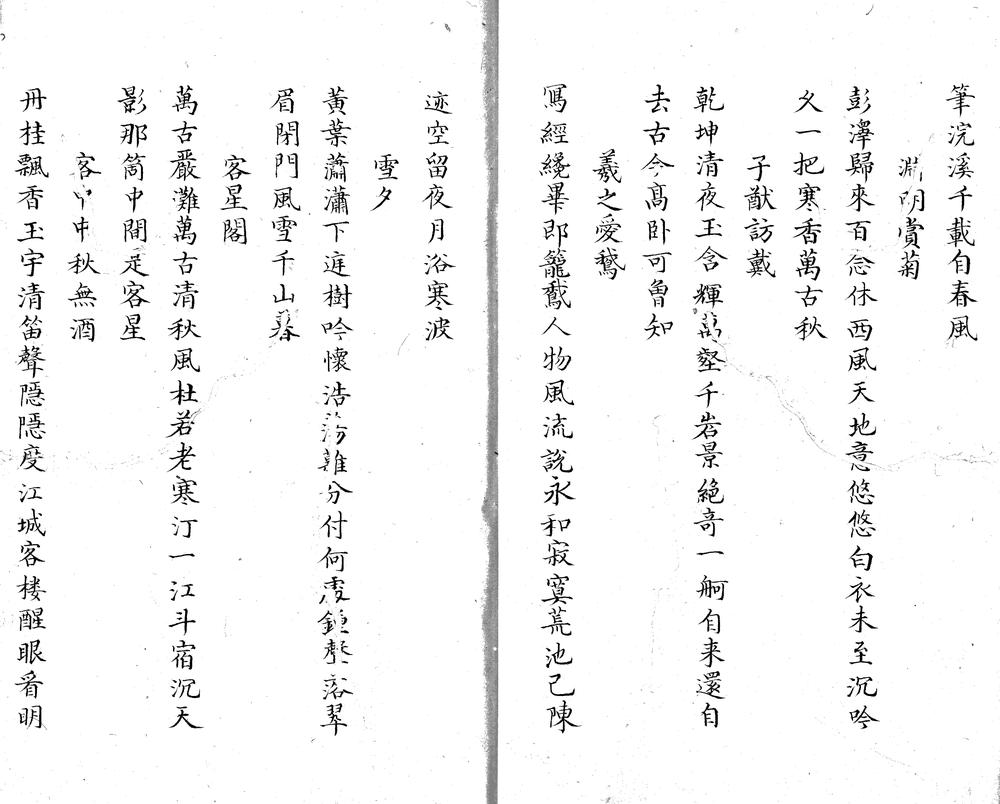 筆浣溪千載自春風
淵明賞菊
彭澤歸來百念休西風天地意悠悠白衣未至沉吟
久一把寒香萬古秋
子猷訪戴
乾坤清夜玉含輝萬壑千岩景絕奇一舸自来還自
去古今高卧可曾知
羲之愛鵞
寫經纔畢即籠鵞人物風流說永和寂寞荒池已陳
迹空留夜月浴寒波
雪夕
黃葉蕭瀟下逕樹吟懷浩蕩難分付何處鍾聲落翠
眉閉門風雪千山暮
客星閣
萬古嚴灘萬古清秋風杜若老寒汀一江斗宿沉天
影那箇中間是客星
客中中秋無酒
丹桂飄香玉宇清笛聲隱隱度江城客楼醒眼看明